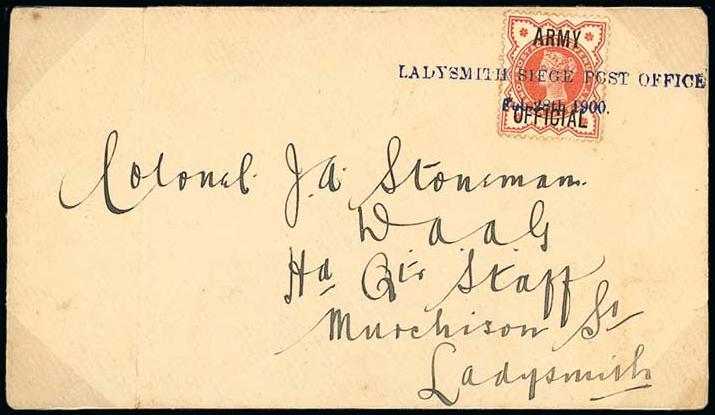 ARMY
LADYSMITH SIEGE POST OFFICE
Feb. 28th 1900.
OFFICIAL
Colonel J. A. Stoneman
D A A G
Hd Qtr Staff
Murchison St
Ladysmith